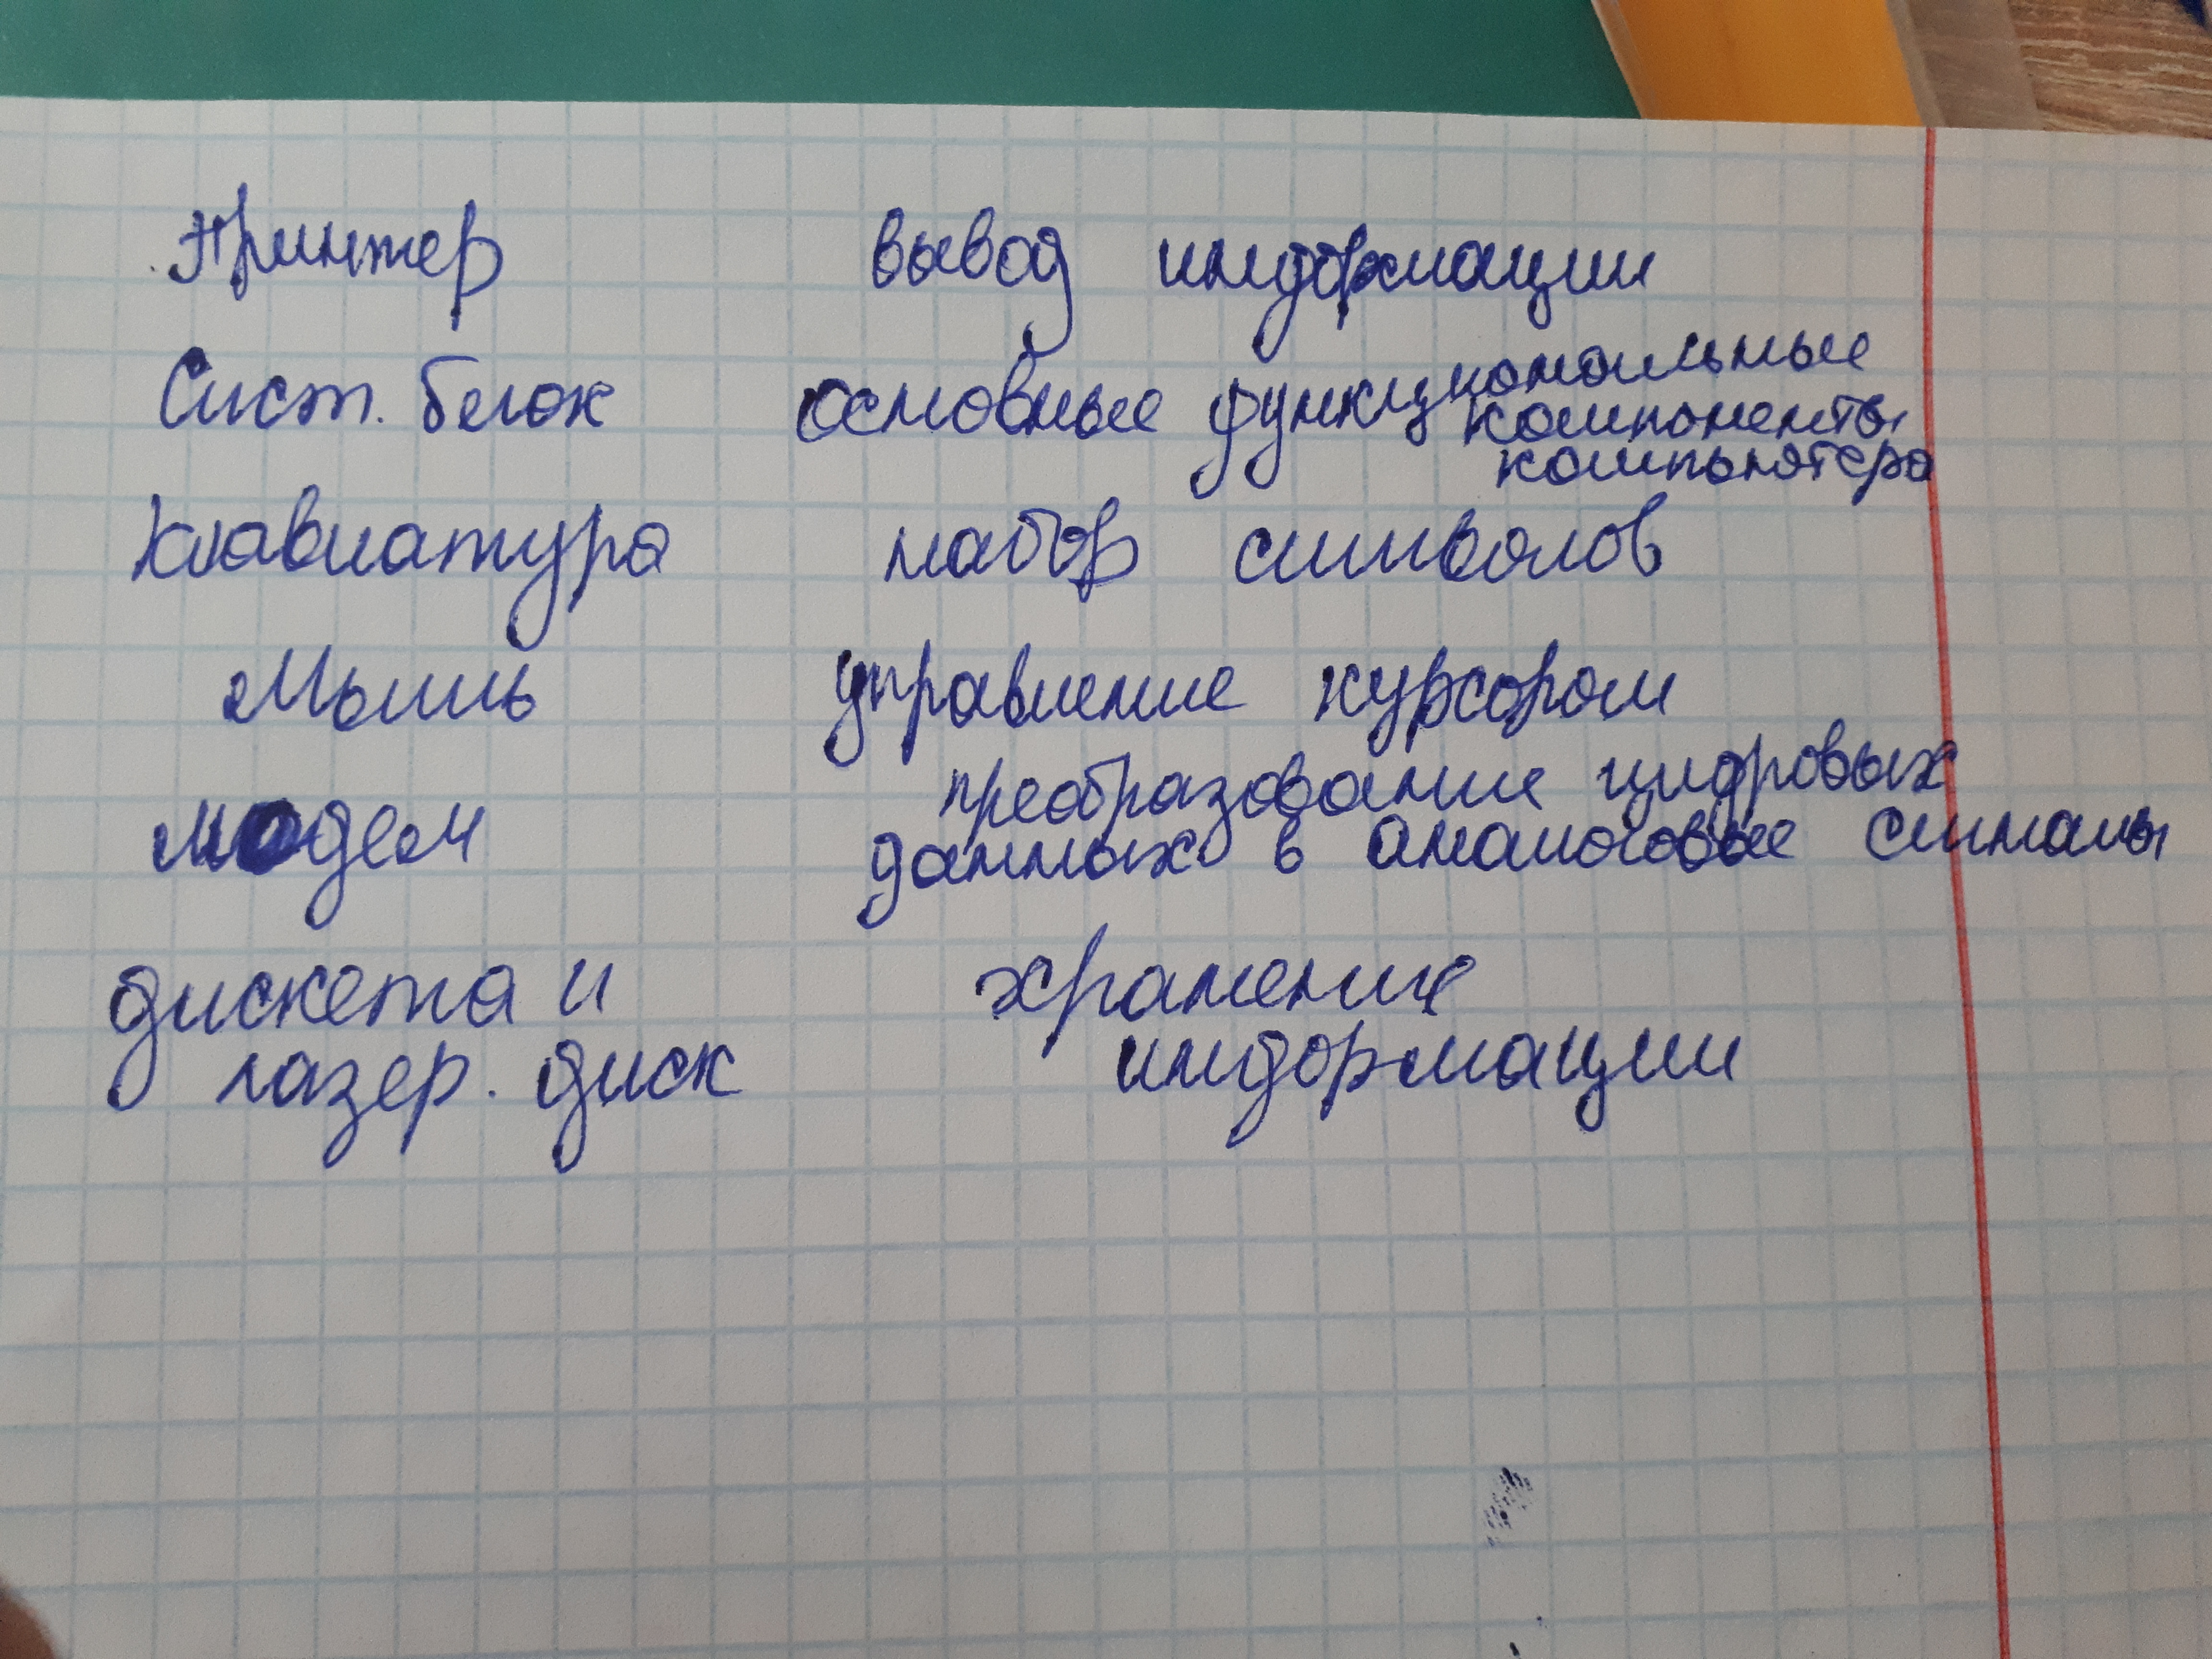 Принтер вывод информации
Сист. блок основные функциональные
компоненты
компьютера
Клавиатура набор символов
Мышь управление курсором
модем преобразование цифровых
данных в аналоговые сигналы
дискета и хранение
лазер. диск информации